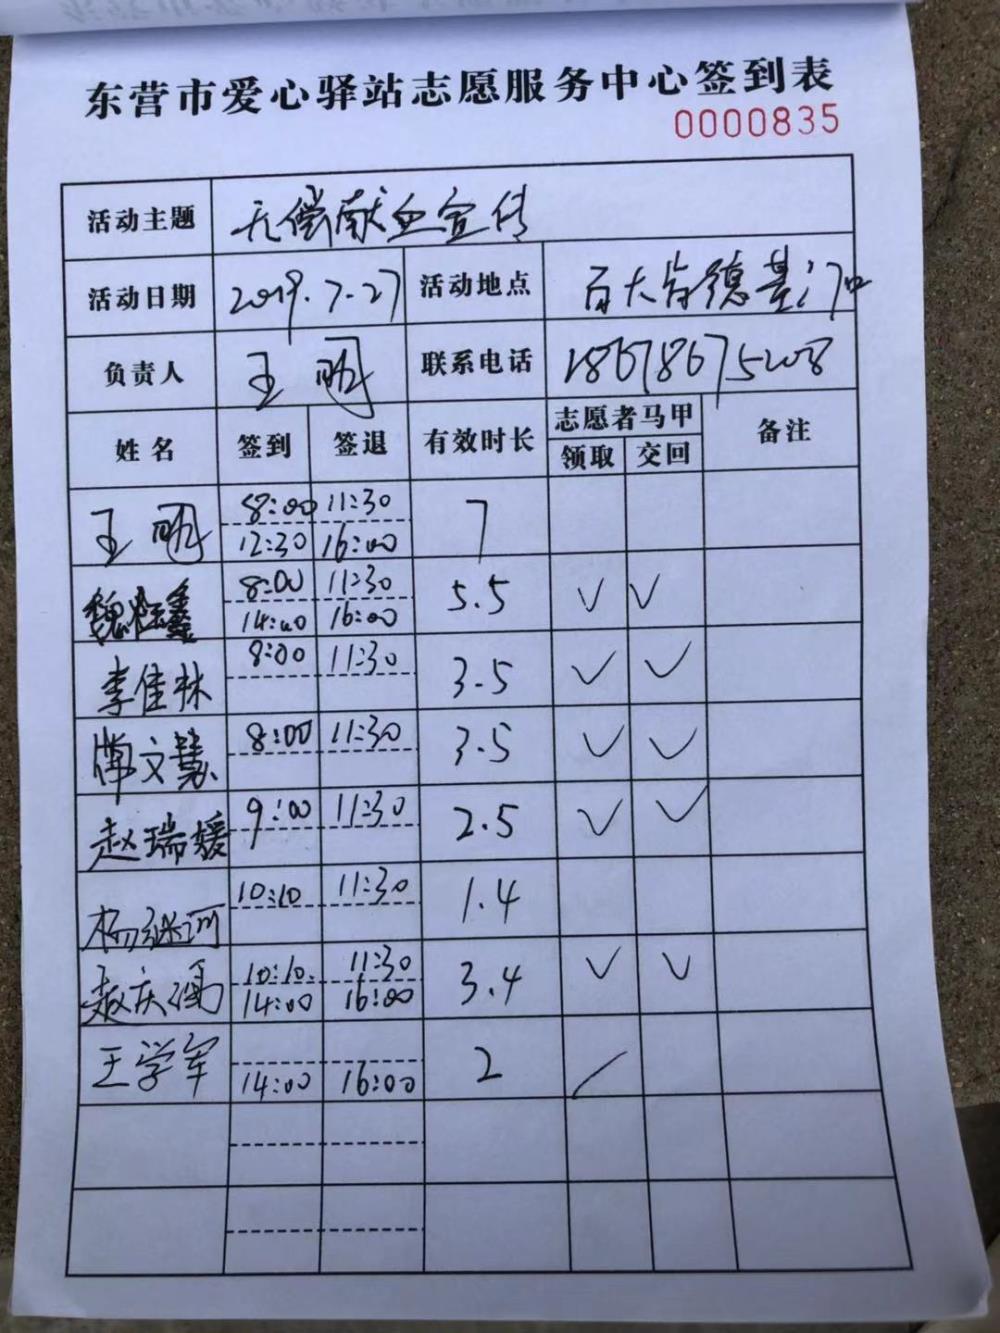 东营市爱心驿站志愿服务中心签到表
0000835
活动主题 无偿献血宣传
活动日期 2019.7.27 活动地点 百大肯德基门口
负责人 王明 联系电话 18678675208
姓名 签到 签退 有效时长 志愿者马甲 备注
领取 交回
王明 8:00 11:30 7
12:30 16:00
魏 鑫 8:00 11:30 5.5 ✓ ✓
14:00 16:00
李佳林 8:00 11:30 3.5 ✓ ✓
傅文慧 8:00 11:30 3.5 ✓ ✓
赵瑞媛 9:00 11:30 2.5 ✓ ✓
杨继河 10:10 11:30 1.4
庆 10:10. 11:30 3.4 ✓ ✓
14:00 16:00
王学军 14:00 16:00 2